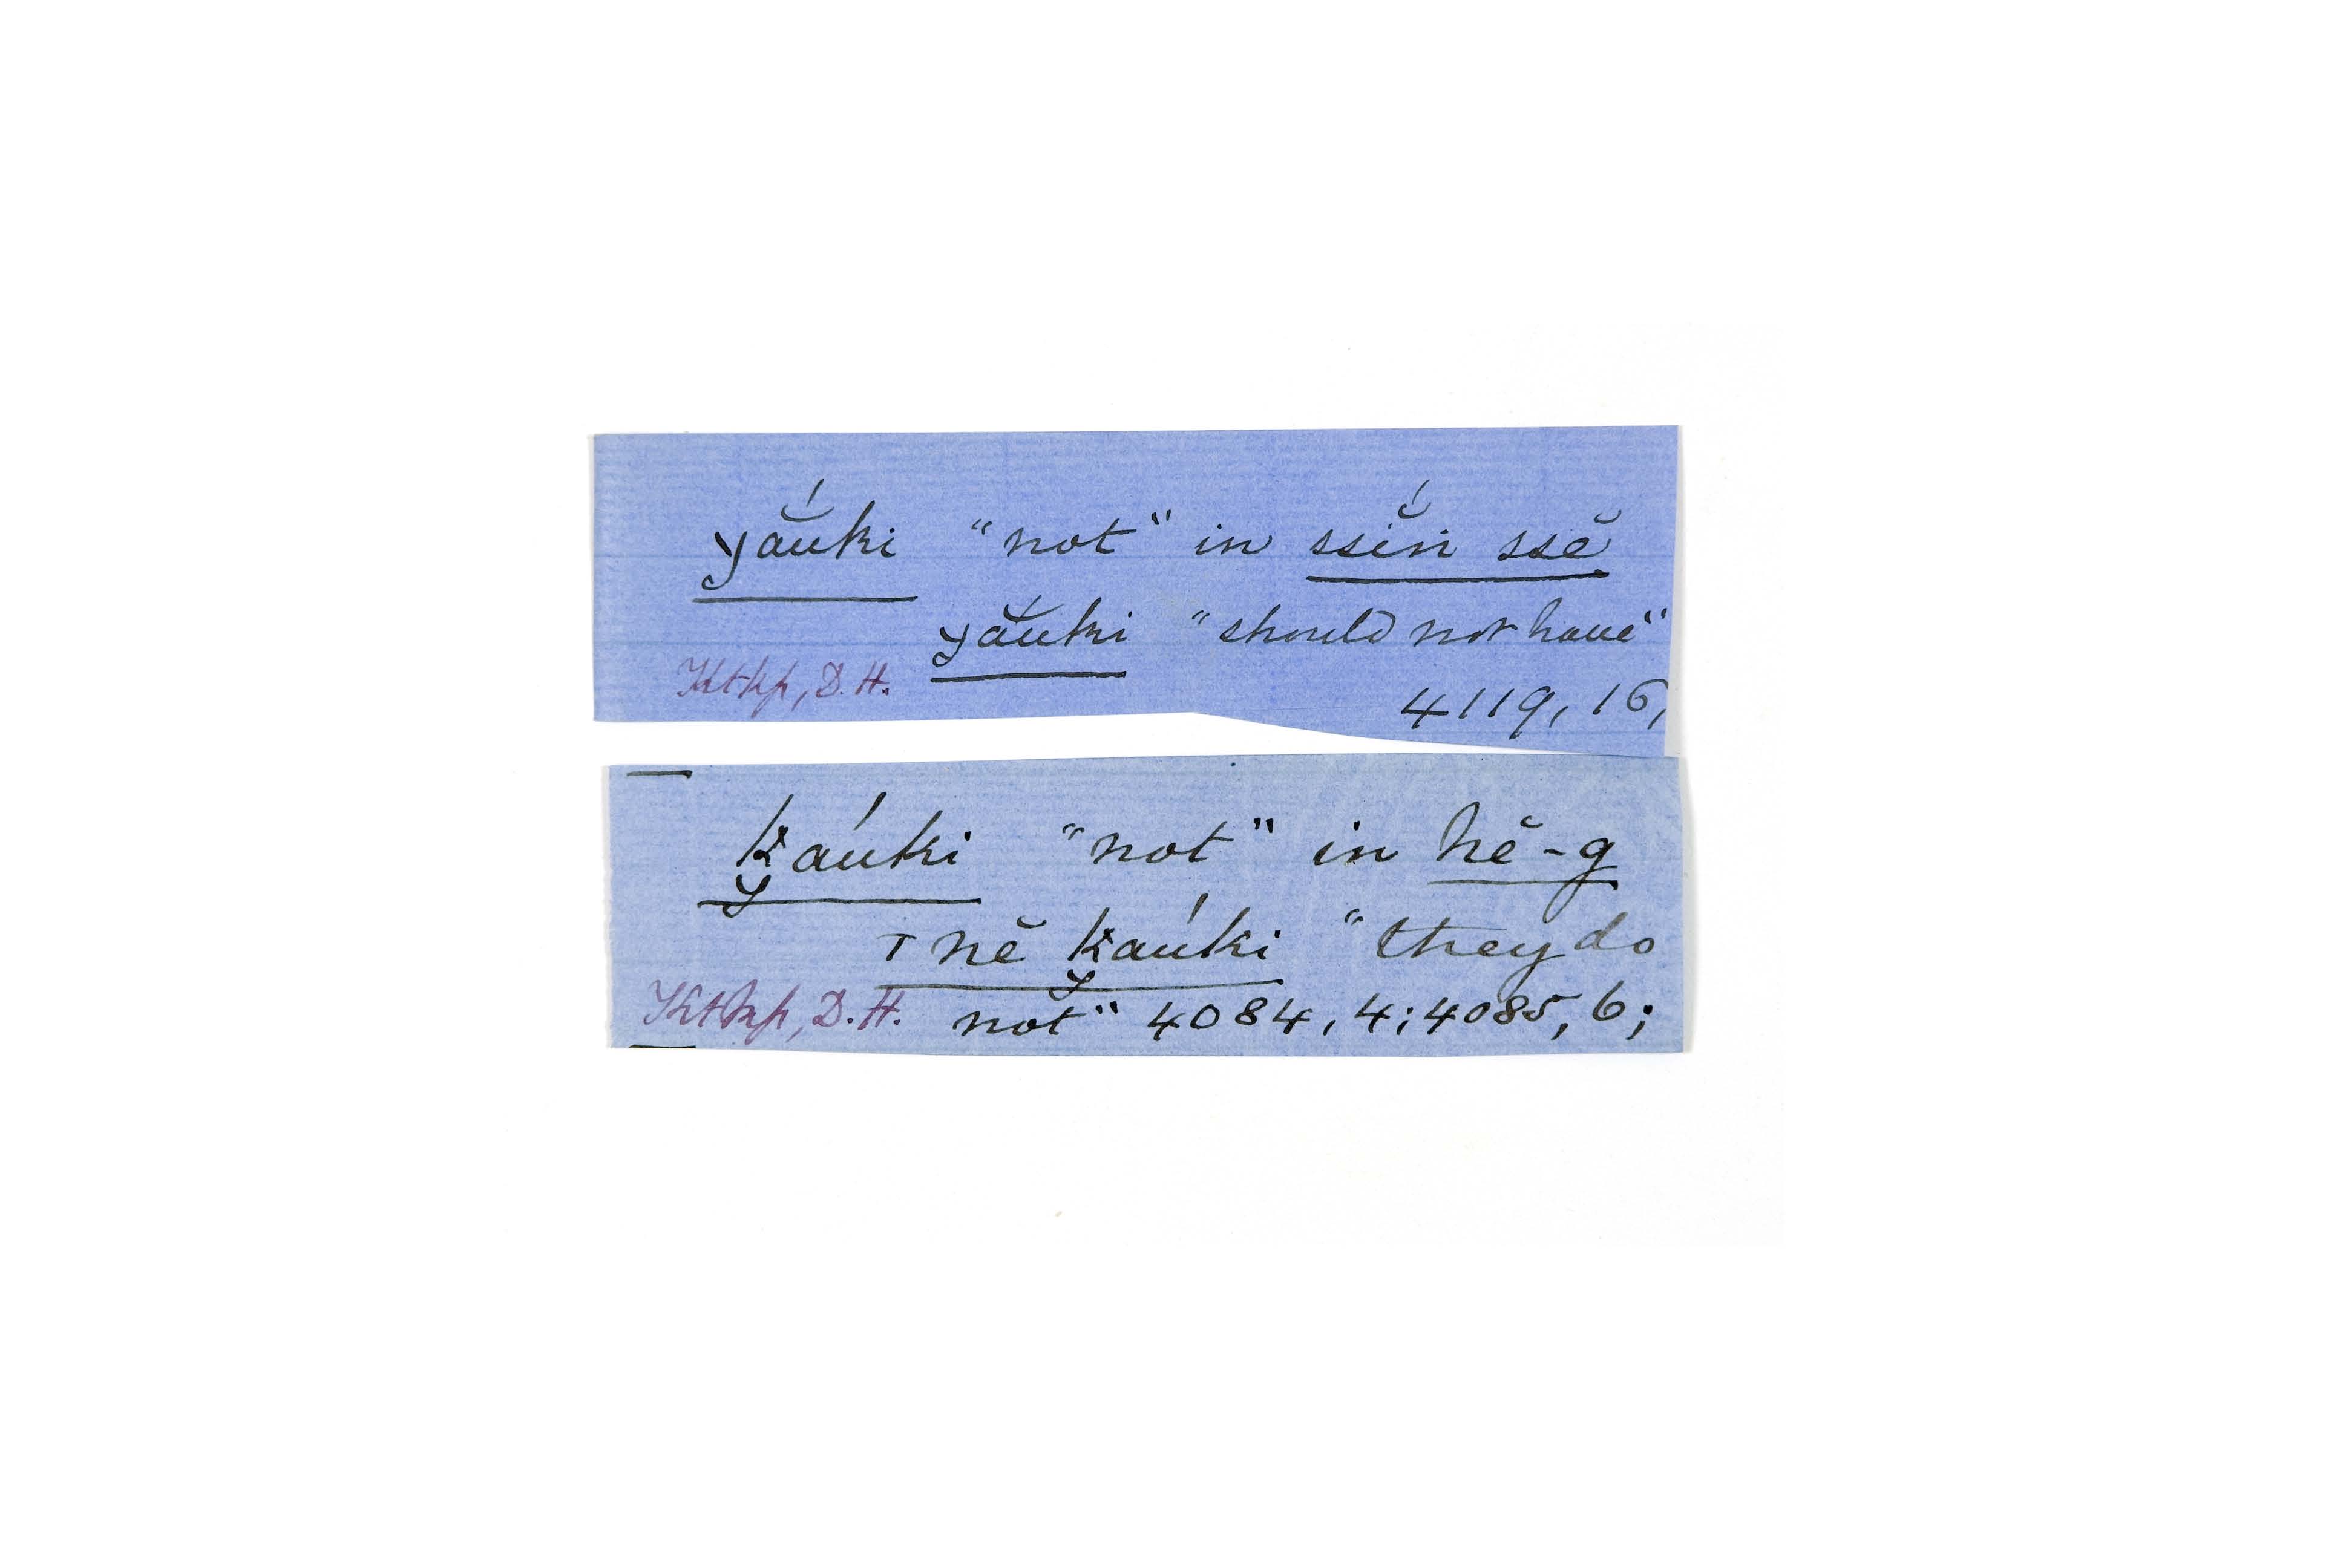 yắuki “not” in ssĕ́n ssĕ
yắuki “should not have”
Ktkp, D. H.
4119, 16,
k̯áuki “not” in hĕ-g
ı nĕ k̯aúki “they do
Ktkp, D. H. not” 4084, 4; 4085, 6;